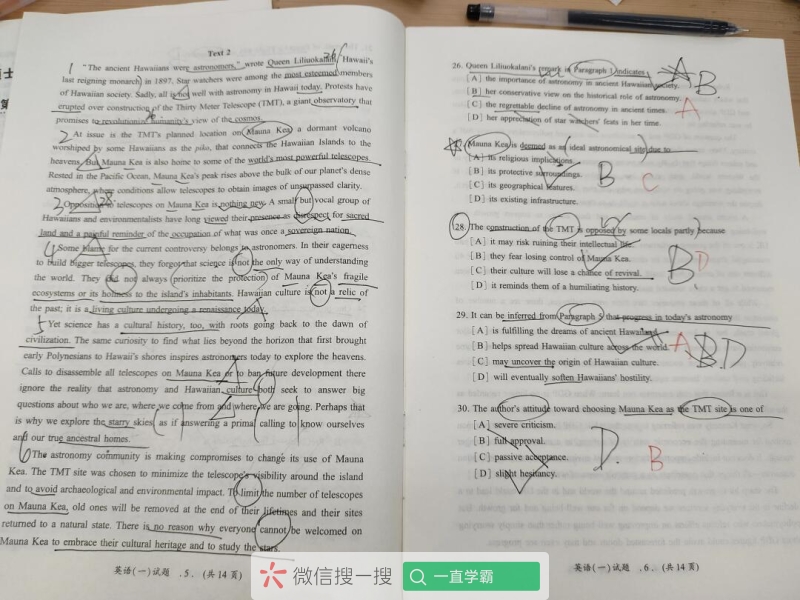 Text 2
1 "The ancient Hawaiians were astronomers," wrote Queen Liliuokalani, Hawaii's
last reigning monarch, in 1897. Star watchers were among the most esteemed members
of Hawaiian society. Sadly, all is not well with astronomy in Hawaii today. Protests have
erupted over construction of the Thirty Meter Telescope (TMT), a giant observatory that
promises to revolutionize humanity's view of the cosmos.
2 At issue is the TMT's planned location on Mauna Kea, a dormant volcano
worshiped by some Hawaiians as the piko, that connects the Hawaiian Islands to the
heavens. But Mauna Kea is also home to some of the world's most powerful telescopes.
Rested in the Pacific Ocean, Mauna Kea's peak rises above the bulk of our planet's dense
atmosphere, where conditions allow telescopes to obtain images of unsurpassed clarity.
3 Opposition to telescopes on Mauna Kea is nothing new. A small but vocal group of
Hawaiians and environmentalists have long viewed their presence as disrespect for sacred
land and a painful reminder of the occupation of what was once a sovereign nation.
4 Some blame for the current controversy belongs to astronomers. In their eagerness
to build bigger telescopes, they forgot that science is not the only way of understanding
the world. They did not always prioritize the protection of Mauna Kea's fragile
ecosystems or its holiness to the island's inhabitants. Hawaiian culture is not a relic of
the past; it is a living culture undergoing a renaissance today.
5 Yet science has a cultural history, too, with roots going back to the dawn of
civilization. The same curiosity to find what lies beyond the horizon that first brought
early Polynesians to Hawaii's shores inspires astronomers today to explore the heavens.
Calls to disassemble all telescopes on Mauna Kea or to ban future development there
ignore the reality that astronomy and Hawaiian culture both seek to answer big
questions about who we are, where we come from and where we are going. Perhaps that
is why we explore the starry skies, as if answering a primal calling to know ourselves
and our true ancestral homes.
6 The astronomy community is making compromises to change its use of Mauna
Kea. The TMT site was chosen to minimize the telescope's visibility around the island
and to avoid archaeological and environmental impact. To limit the number of telescopes
on Mauna Kea, old ones will be removed at the end of their lifetimes and their sites
returned to a natural state. There is no reason why everyone cannot be welcomed on
Mauna Kea to embrace their cultural heritage and to study the stars.
英语(一)试题 .5. (共14页)
26. Queen Liliuokalani's remark in Paragraph 1 indicates
B
[A] the importance of astronomy in ancient Hawaiian society.
[B] her conservative view on the historical role of astronomy.
[C] the regrettable decline of astronomy in ancient times.
A
[D] her appreciation of star watchers' feats in her time.
27. Mauna Kea is deemed as an ideal astronomical site due to
[A] its religious implications.
[B] its protective surroundings.
B C
[C] its geographical features.
[D] its existing infrastructure.
28. The construction of the TMT is opposed by some locals partly because
[A] it may risk ruining their intellectual life.
[B] they fear losing control of Mauna Kea.
B D
[C] their culture will lose a chance of revival.
[D] it reminds them of a humiliating history.
29. It can be inferred from Paragraph 5 that progress in today's astronomy
[A] is fulfilling the dreams of ancient Hawaiians.
[B] helps spread Hawaiian culture across the world.
A B D
[C] may uncover the origin of Hawaiian culture.
[D] will eventually soften Hawaiians' hostility.
30. The author's attitude toward choosing Mauna Kea as the TMT site is one of
[A] severe criticism.
[B] full approval.
D. B
[C] passive acceptance.
[D] slight hesitancy.
英语(一)试题 .6. (共14页)
微信搜一搜 一直学霸